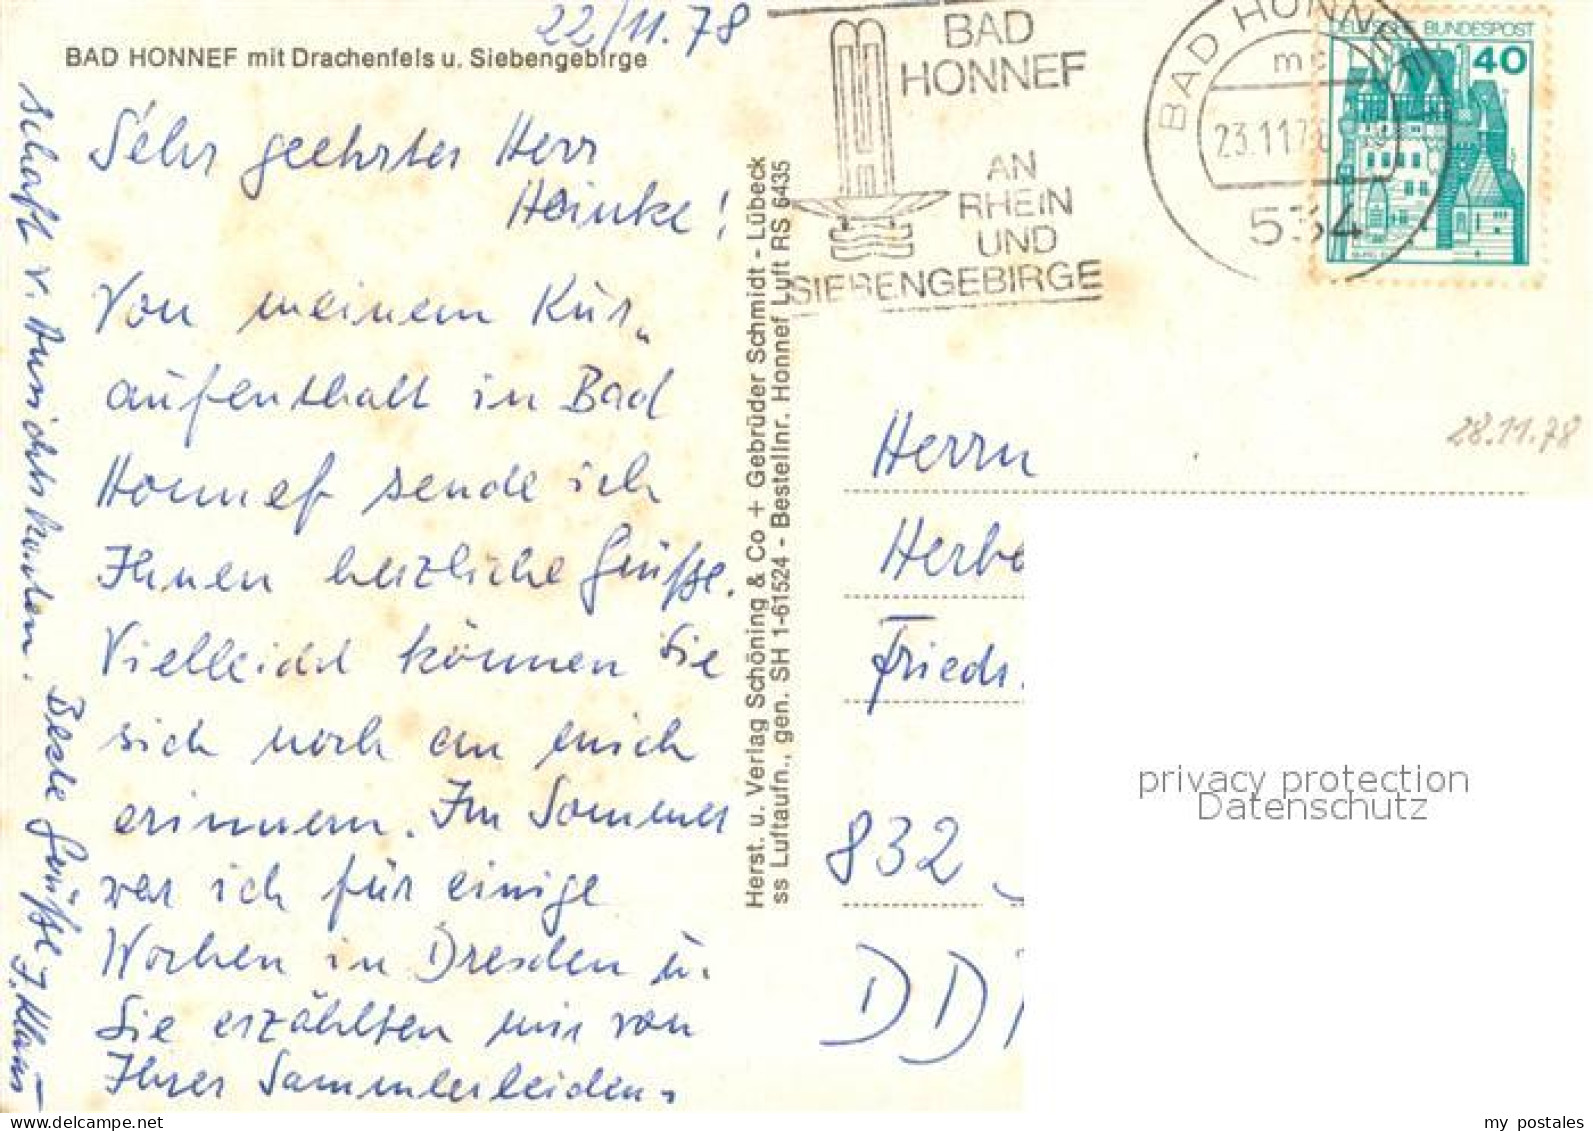 22/11.78
BAD HONNEF mit Drachenfels u. Siebengebirge
Sehr geehrter Herr
Heinke!
Von meinem Kur-
aufenthalt in Bad
Honnef sende ich
Ihnen herzliche Grüße.
Vielleicht können Sie
sich noch an mich
erinnern. Im Sommer
war ich für einige
Wochen in Dresden u.
Sie erzählten mir von
Ihrer Sammlerleiden-
schaft v. Ansichtskarten.
Beste Grüße J. Klaus
Herst. u. Verlag Schöning & Co + Gebrüder Schmidt - Lübeck
ss Luftaufn., gen. SH 1-61524 - Bestellnr. Honnef Luft RS 6435
BAD
HONNEF
AN
RHEIN
UND
SIEBENGEBIRGE
BAD HONNEF
23.11.7
534
DEUTSCHE BUNDESPOST
40
28.11.78
Herrn
Herbe
Friedr.
832
DD
privacy protection
Datenschutz
my postales
www.delcampe.net